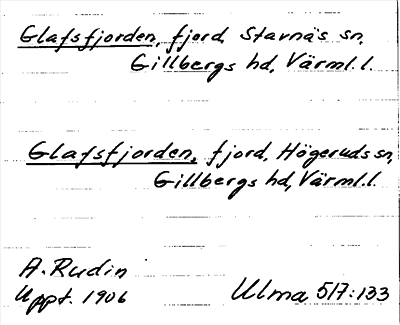 Glafsfjorden, fjord, Stavnäs sn,
Gillbergs hd, Värml.l.
Glafsfjorden, fjord, Högeruds sn,
Gillbergs hd, Värml.l.
A. Rudin
Uppt. 1906
Ulma 517:133